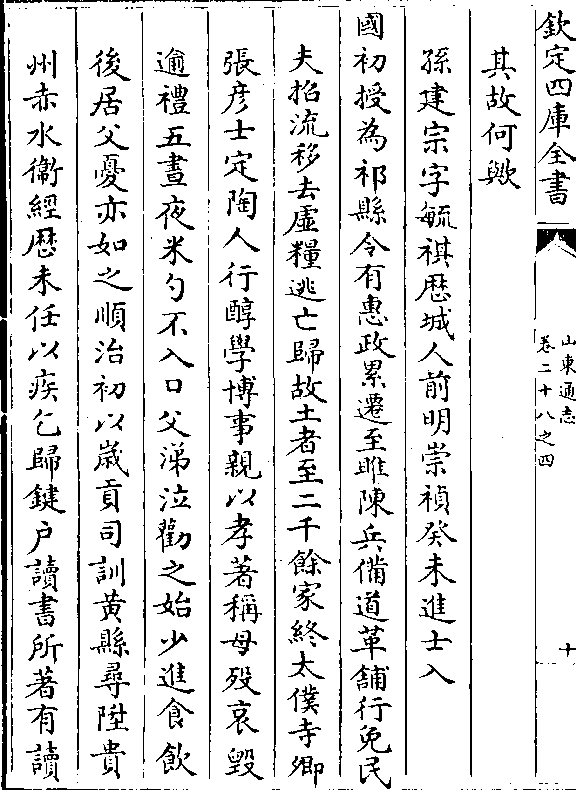 欽定四庫全書
山東通志
卷二十八之四
十
其故何歟
孫建宗字毓祺歴城人前明崇禎癸未進士入
國初授為祁縣令有惠政累遷至睢陳兵備道革舖行免民
夫招流移去虚糧逃亡歸故土者至二千餘家終太僕寺卿
張彦士定陶人行醇學博事親以孝著稱母殁哀毁
逾禮五晝夜米勺不入口父涕泣勸之始少進食飲
後居父憂亦如之順治初以歲貢司訓黄縣尋陞貴
州赤水衞經歴未任以疾乞歸鍵户讀書所著有讀